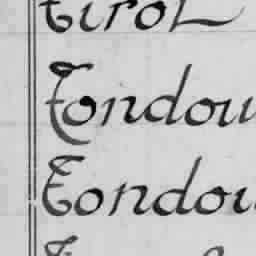 Tirol
Tondou
Tondou